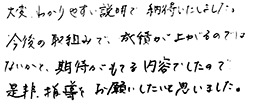 大変、わかりやすい説明で納得いたしました。
今後の取組みで、成績が上がるのでは
ないかと、期待がもてる内容でしたので
是非、指導をお願いしたいと思いました。